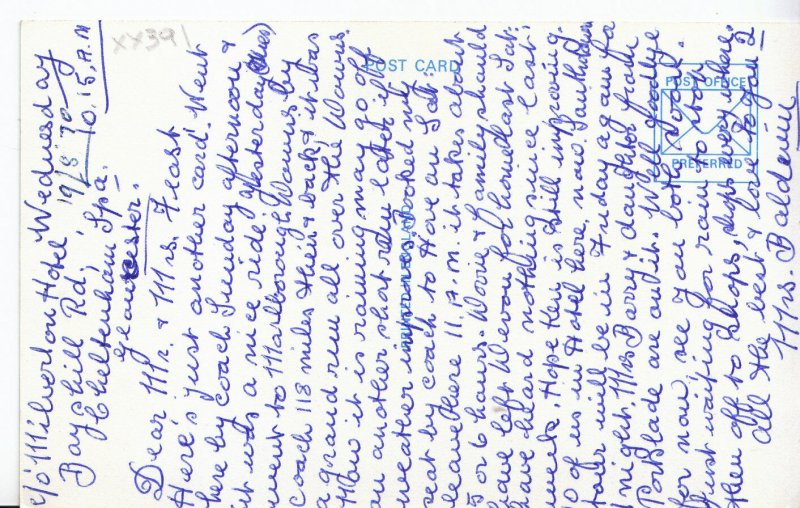 XX391
POST CARD
POST OFFICE
PREFERRED
PRINTED IN
c/o Milverton Hotel Wednesday
Bayshill Rd, 19/8/70
Cheltenham Spa. 10.15.A.M
Gloucester.
Dear Mr. & Mrs. Feast
Here's just another card. Went
here by Coach Sunday afternoon &
it was a nice ride, yesterday
went to Marlborough, Woburn by
coach 118 miles there & back & it was
a grand run all over the
Now it is raining may go off
on another short run later if
weather improves. Booked my
seat by coach to Hove on Sat:
leave there 11.A.M. it takes about
5 or 6 hours. & family should
have left Devon for home last Sat:
have heard nothing since last
week. Hope Ken is still improving.
10 of us in Hotel here, now
four will be in Friday again for
1 night. Mrs Barry & daughter from
Portslade are on it. Well goodbye
for now see you both soon.
Just waiting for rain to stop
then off to shops, ships every there.
all the best & love to you 2
Mrs. Baldwin